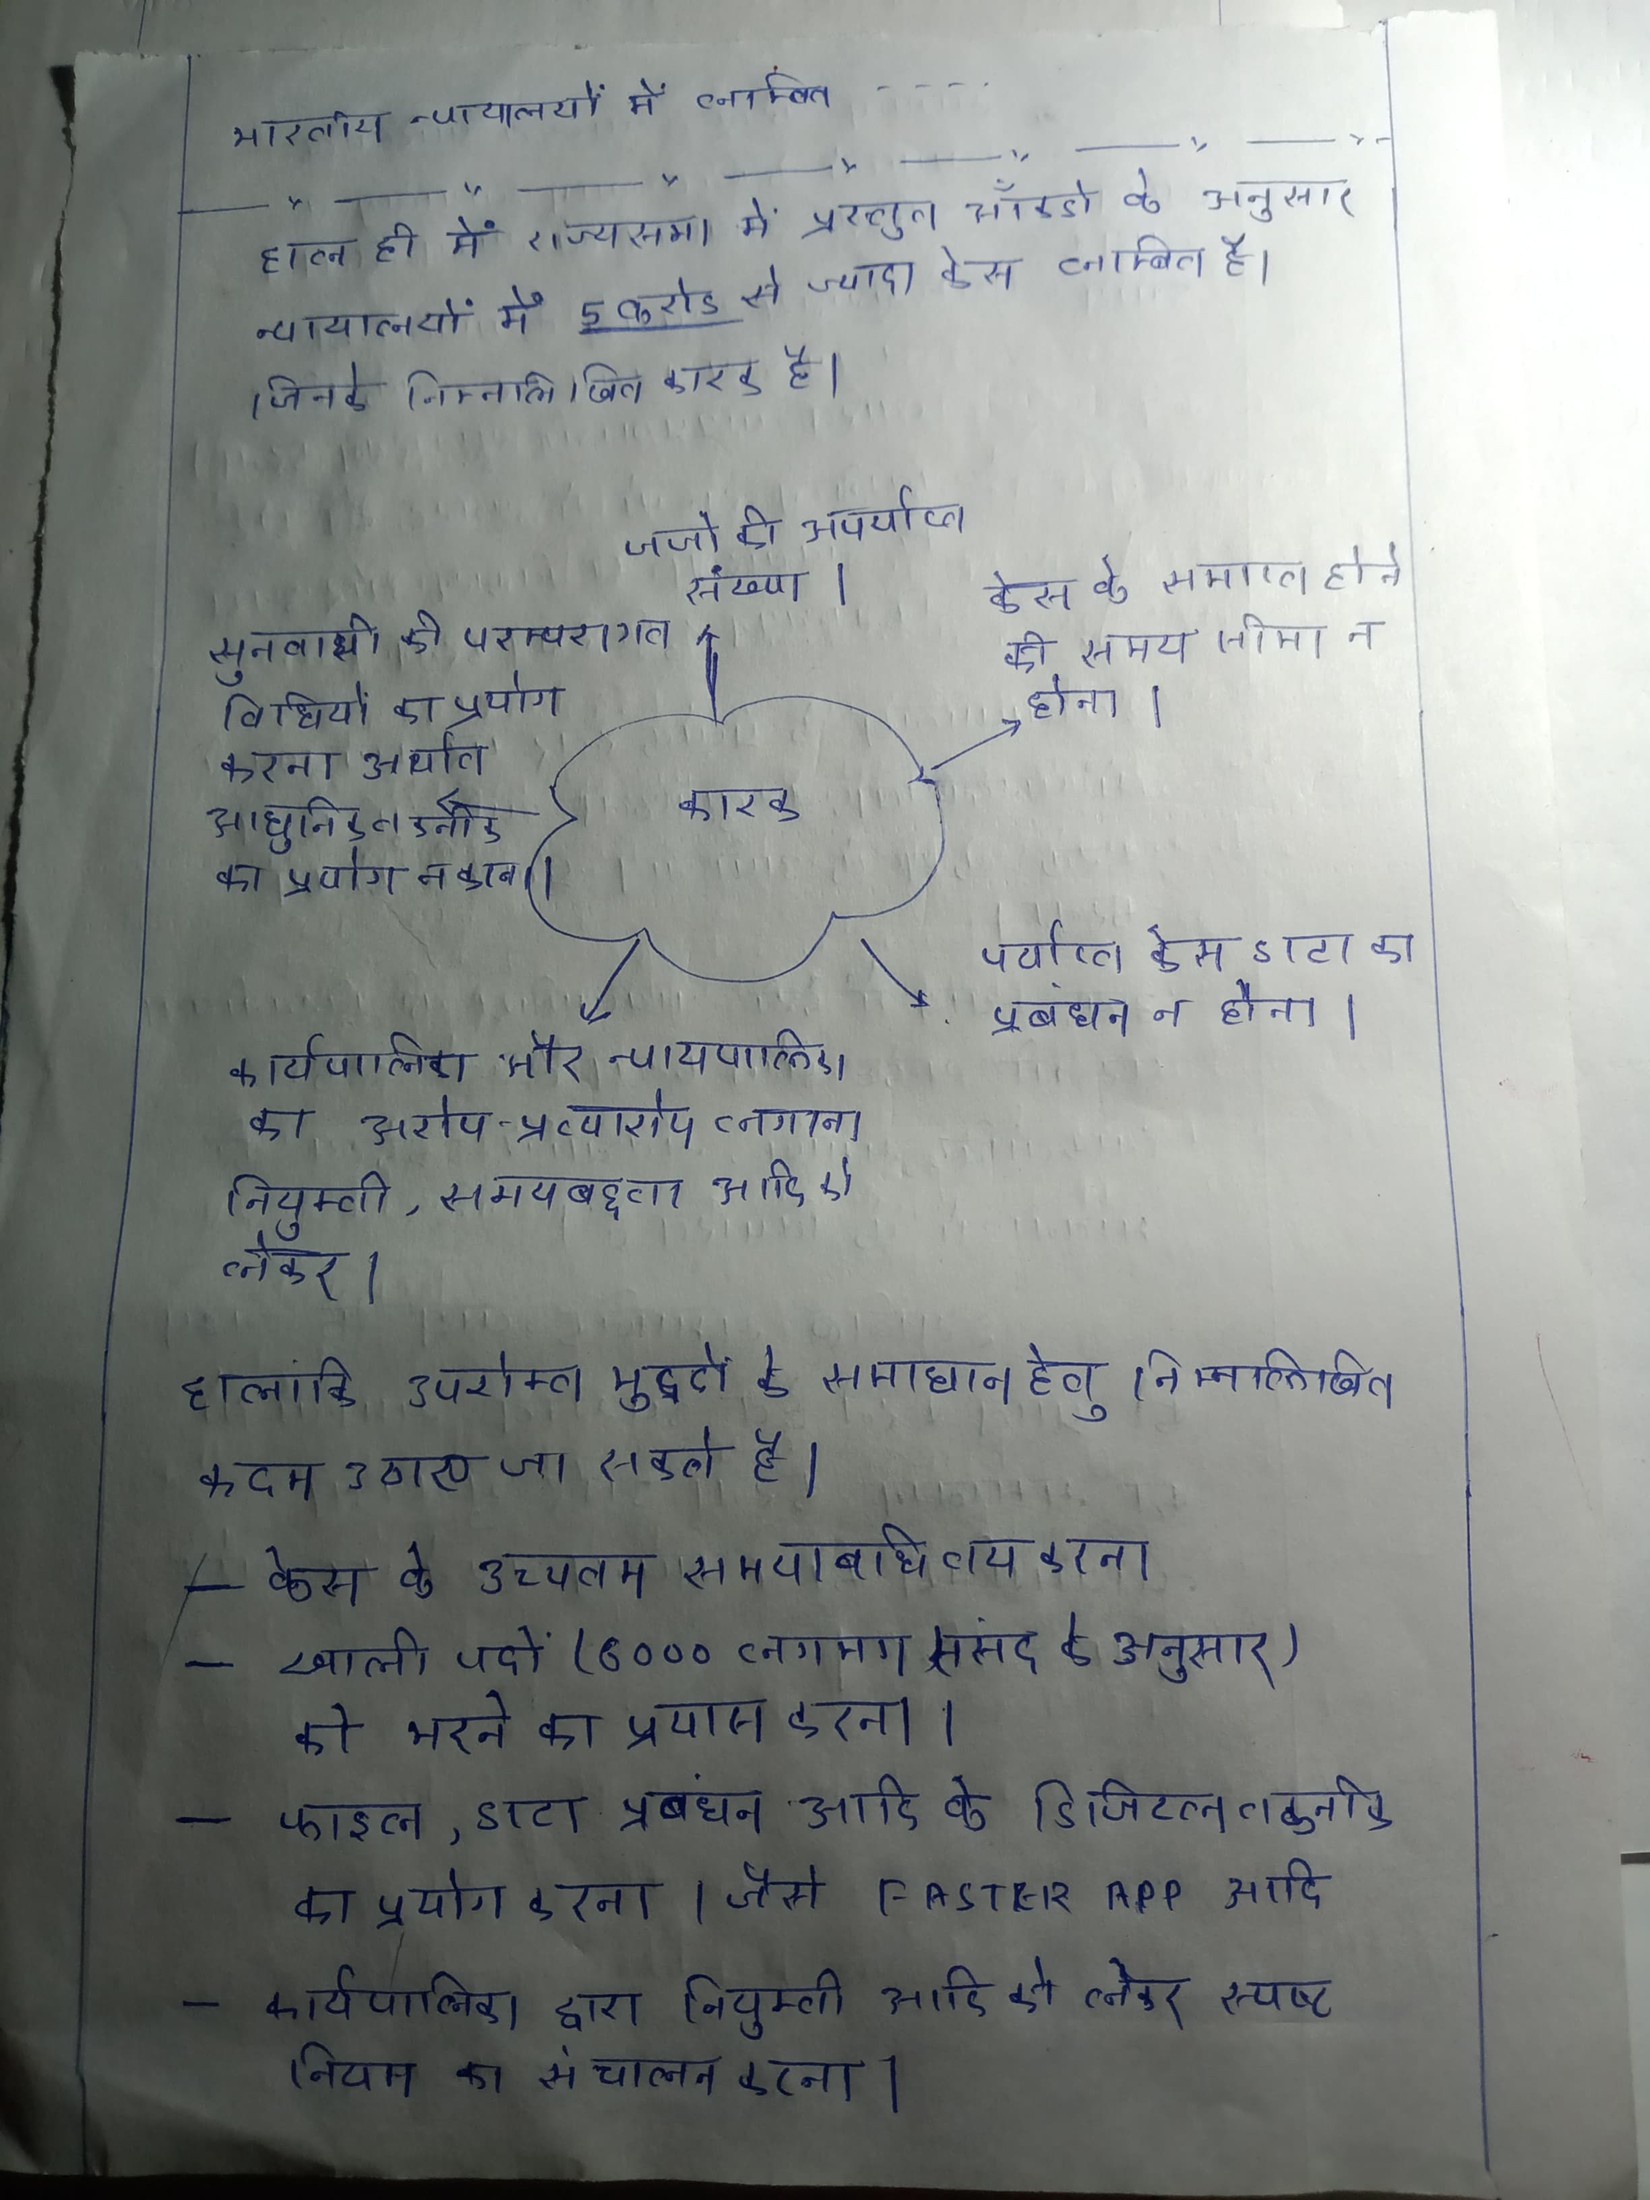 भारतीय न्यायालयों में लाम्बित - - - -
— " — " — " — " — " — " — " -
हाल ही में राज्यसभा में प्रस्तुत आँकडो के अनुसार
न्यायालयों में 5 करोड से ज्यादा केस लाम्बित है।
जिनके निम्नलिखित कारक है।
जजो की अपर्याप्त
संख्या।
केस के समाप्त होने
की समय सीमा न
होना।
सुनवायी की परम्परागत
विधियों का प्रयोग
करना अर्थात
आधुनिक तकनीक
का प्रयोग न करना।
कारक
पर्याप्त केस डाटा का
प्रबंधन न होना।
कार्यपालिका और न्यायपालिका
का अरोप-प्रत्यारोप लगाना
नियुक्ती, समयबद्दता आदि को
लेकर।
हालांकि उपरोक्त मुद्दों के समाधान हेतु निम्नलिखित
कदम उठाए जा सकते है।
— केस के उच्चतम समयाबाधि तय करना
— खाली पदों (6000 लगभग संसद के अनुसार)
को भरने का प्रयास करना।
— फाइल, डाटा प्रबंधन आदि के डिजिटल तकनीक
का प्रयोग करना। जैसे FASTER APP आदि
— कार्यपालिका द्वारा नियुक्ती आदि को लेकर स्पष्ट
नियम का संचालन करना।